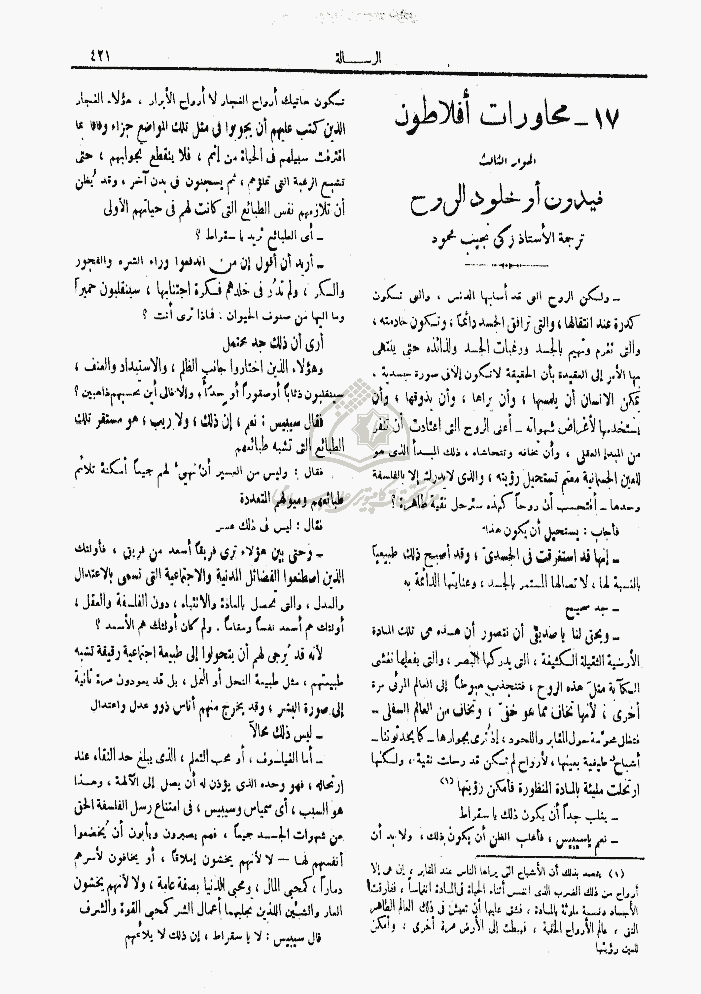 الرسالة
٤٢١
١٧ - محاورات أفلاطون
الحوار الثالث
فيدون أو خلود الروح
ترجمة الأستاذ زكي نجيب محمود
ـ ولكن الروح التي قد أصابها الدنس ، والتي تكون
كدرة عند انتقالها ، والتي ترافق الجسد دائماً ، وتكون خادمته ،
والتي تغرم وتهيم بالجسد ورغبات الجسد ولذائذه حتى ينتهي
بها الأمر إلى العقيدة بأن الحقيقة لا تكون إلا في صورة جسدية ،
يمكن الانسان أن يلمسها ، وأن يراها ، وأن يذوقها ، وأن
يستخدمها لأغراض شهواته ـ أعنى الروح التي اعتادت أن تنفر
من المبدأ العقلي ، وأن تخافه وتتحاشاه ، ذلك المبدأ الذي هو
للعين الجسمانية معتم تستحيل رؤيته ، والذي لا يدرك إلا بالفلسفة
وحدها ـ أفتحسب أن روحاً كهذه سترحل نقية طاهرة ؟
فأجاب : يستحيل أن يكون هذا
ـ إنها قد استغرقت في الجسدي ، وقد أصبح ذلك طبيعياً
بالنسبة لها ، لاتصالها المستمر بالجسد ، وعنايتها الدائمة به
ـ جد صحيح
ـ ويحق لنا يا صديقي أن نتصور أن هذه هي تلك المادة
الأرضية الثقيلة الكثيفة ، التي يدركها البصر ، والتي بفعلها تغشى
الكآبة مثل هذه الروح ، فتنجذب هبوطاً إلى العالم المرئي مرة
أخرى ، لأنها تخاف مما هو خفي ، وتخاف من العالم السفلي ـ
فتظل محومة حول المقابر واللحود ، إذ تُرى بجوارها ـ كما يحدثوننا ـ
أشباح طيفية بعينها ، لأرواح لم تكن قد رحلت نقية ، ولكنها
ارتحلت مليئة بالمادة المنظورة فأمكن رؤيتها (١)
ـ يغلب جداً أن يكون ذلك يا سقراط
ـ نعم يا سيبيس ، فأغلب الظن أن يكون ذلك ، ولا بد أن
(١) يقصد بذلك أن الأشباح التي يراها الناس عند المقابر ، إن هي إلا
أرواح من ذلك الضرب الذي انغمس أثناء الحياة في المادة انغماساً ، ففارقت
الأجساد دنسة ملوثة بالمادة ، فشق عليها أن تعيش في ذلك العالم الطاهر
النقي ، عالم الأرواح الخفية ، فهبطت إلى الأرض مرة أخرى ، وأمكن
للعين رؤيتها
تكون هاتيك أرواح الفجار لا أرواح الأبرار ، هؤلاء الفجار
الذين كتب عليهم أن يجوبوا في مثل تلك المواضع جزاء وفاقا بما
اقترفت سبيلهم في الحياة من إثم ، فلا ينقطع تجوابهم ، حتى
تشبع الرغبة التي تملؤهم ، ثم يسجنون في بدن آخر ، وقد يُظن
أن تلازمهم نفس الطبائع التي كانت لهم في حياتهم الأولى
ـ أي الطبائع تريد يا سقراط ؟
ـ أريد أن أقول إن من اندفعوا وراء الشره والفجور
والسكر ، ولم تدُر في خلدهم فكرة اجتنابها ، سينقلبون حميراً
وما إليها من صنوف الحيوان ، فماذا ترى أنت ؟
أرى أن ذلك جد محتمل
وهؤلاء الذين اختاروا جانب الظلم ، والاستبداد والعنف ،
سينقلبون ذئاباً أو صقوراً أو حدآء ، وإلا فالى أين تحسبهم ذاهبين ؟
فقال سيبيس : نعم ، إن ذلك ، ولا ريب ، هو مستقر تلك
الطبائع التي تشبه طبائعهم
فقال : وليس من العسير أن نهيئ لهم جميعاً أمكنة تلائم
طبائعهم وميولهم المتعددة
فقال : ليس في ذلك عسر
ـ وحتى بين هؤلاء ترى فريقاً أسعد من فريق ، فأولئك
الذين اصطنعوا الفضائل المدنية والاجتماعية التي تسمى بالاعتدال
والعدل ، والتي تحصل بالعادة والانتباه ، دون الفلسفة والعقل ،
أولئك هم أسعد نفساً ومقاماً . ولم كان أولئك هم الأسعد ؟
لأنه قد يُرجى لهم أن يتحولوا إلى طبيعة اجتماعية رقيقة تشبه
طبيعتهم ، مثل طبيعة النحل أو النمل ، بل قد يعودون مرة ثانية
إلى صورة البشر ، وقد يخرج منهم أناس ذوو عدل واعتدال
ـ ليس ذلك محالاً
ـ أما الفيلسوف ، أو محب التعلم ، الذي يبلغ حد النقاء عند
ارتحاله ، فهو وحده الذي يؤذن له أن يصل إلى الآلهة ، وهذا
هو السبب ، أي سمياس وسيبيس ، في امتناع رسل الفلسفة الحق
عن شهوات الجسد جميعاً ، فهم يصبرون ويأبون أن يُخضعوا
أنفسهم لها ـ لا لأنهم يخشون إملاقاً ، أو يخافون لأسرهم
دماراً ، كمحبي المال ، ومحبي الدنيا بصفة عامة ، ولا لأنهم يخشون
العار والشين اللذين تجلبهما أعمال الشر كمحبي القوة والشرف
قال سيبيس : لا يا سقراط ، إن ذلك لا يلائمهم